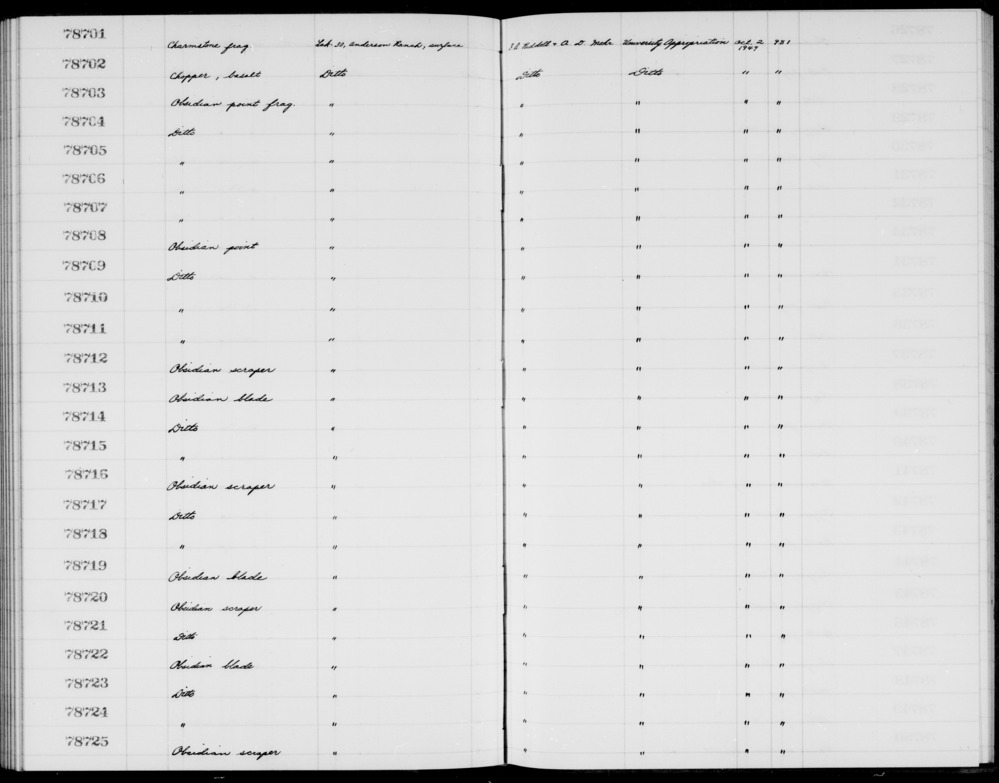 78701 Charmstone frag. Lak-30, Anderson Ranch, surface & A. D. Mohr University Appropriation Oct. 2 1949 981
78702 Chopper, basalt Ditto Ditto Ditto " "
78703 Obsidian point frag. " " " " "
78704 Ditto " " " " "
78705 " " " " " "
78706 " " " " " "
78707 " " " " " "
78708 Obsidian point " " " " "
78709 Ditto " " " " "
78710 " " " " " "
78711 " " " " " "
78712 Obsidian scraper " " " " "
78713 Obsidian blade " " " " "
78714 Ditto " " " " "
78715 " " " " " "
78716 Obsidian scraper " " " " "
78717 Ditto " " " " "
78718 " " " " " "
78719 Obsidian blade " " " " "
78720 Obsidian scraper " " " " "
78721 Ditto " " " " "
78722 Obsidian blade " " " " "
78723 Ditto " " " " "
78724 " " " " " "
78725 Obsidian scraper " " " " "